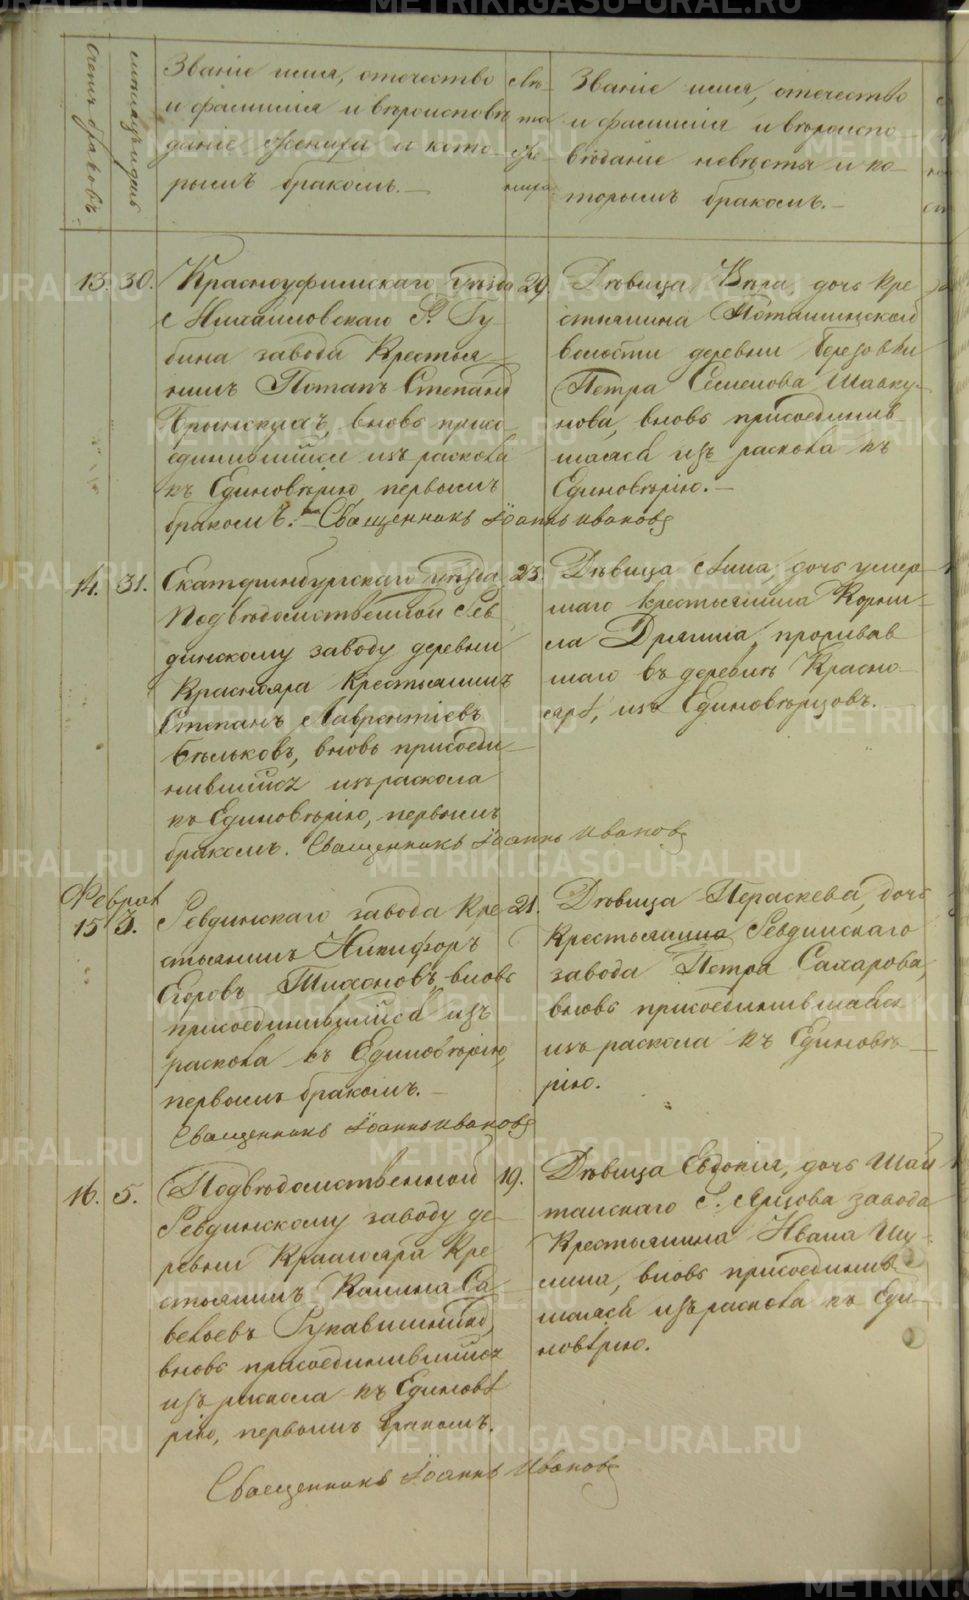 Счетъ браковъ
мѣсяцъ и день
Званіе имя, отечество
и фамилія и вѣроисповѣ
даніе жениха и кото-
рымъ бракомъ.—
Лѣ-
та
же-
ниха
Званіе имя, отечество
и фамилія и вѣроиспо-
вѣданіе невѣсты и ко-
торымъ бракомъ.—
13. 30. Красноуфимскаго уѣзда 29.
с Михаиловскаго Г. Гу-
бина завода крестья-
нинъ Потапъ Степановъ
вновь присо-
единившійся изъ раскола
къ Единовѣрію, первымъ
бракомъ. Священникъ Іоаннъ Ивановъ
Дѣвица Вѣра, дочь кре
стьянина Поташинской
волости деревни Березовки
Петра Семенова Шавку-
нова, вновь присоединив-
шаяся изъ раскола къ
Единовѣрію.—
14. 31. Екатеринбургскаго уѣзда 23.
Подвѣдомственной Рев
динскому заводу деревни
Краснояра крестьянинъ
Степанъ Лаврентіевъ
Бѣльковъ, вновь присоеди-
нившійся изъ раскола
къ Единовѣрію, первымъ
бракомъ. Священникъ Іоаннъ Ивановъ
Дѣвица Анна, дочь умер-
шаго крестьянина Корни-
ла Дрягина, прожива
шаго въ деревнѣ Красно-
ярѣ, изъ Единовѣрцовъ.
Феврал
15 3. Ревдинскаго завода кре- 21.
стьянинъ Никифоръ
Егоровъ Тихоновъ, вновь
присоединившійся изъ
раскола къ Единовѣрію,
первымъ бракомъ.—
Священникъ Іоаннъ Ивановъ
Дѣвица Параскева, дочь
крестьянина Ревдинскаго
завода Петра Сахарова,
вновь присоединившаяся
изъ раскола къ Единовѣ-
рію.
16. 5. Подвѣдомственной 19.
Ревдинскому заводу де-
ревни Краснояра кре
стьянинъ Калина Са-
вельевъ Рукавишниковъ,
вновь присоединившійся
изъ раскола къ Единовѣ
рію, первымъ бракомъ.
Священникъ Іоаннъ Ивановъ
Дѣвица Евдокія, дочь Шай
танскаго Г. Ярцова завода
крестьянина Ивана Шу-
лина, вновь присоединив-
шаяся изъ раскола къ Еди-
новѣрію.
METRIKI.GASO-URAL.RU